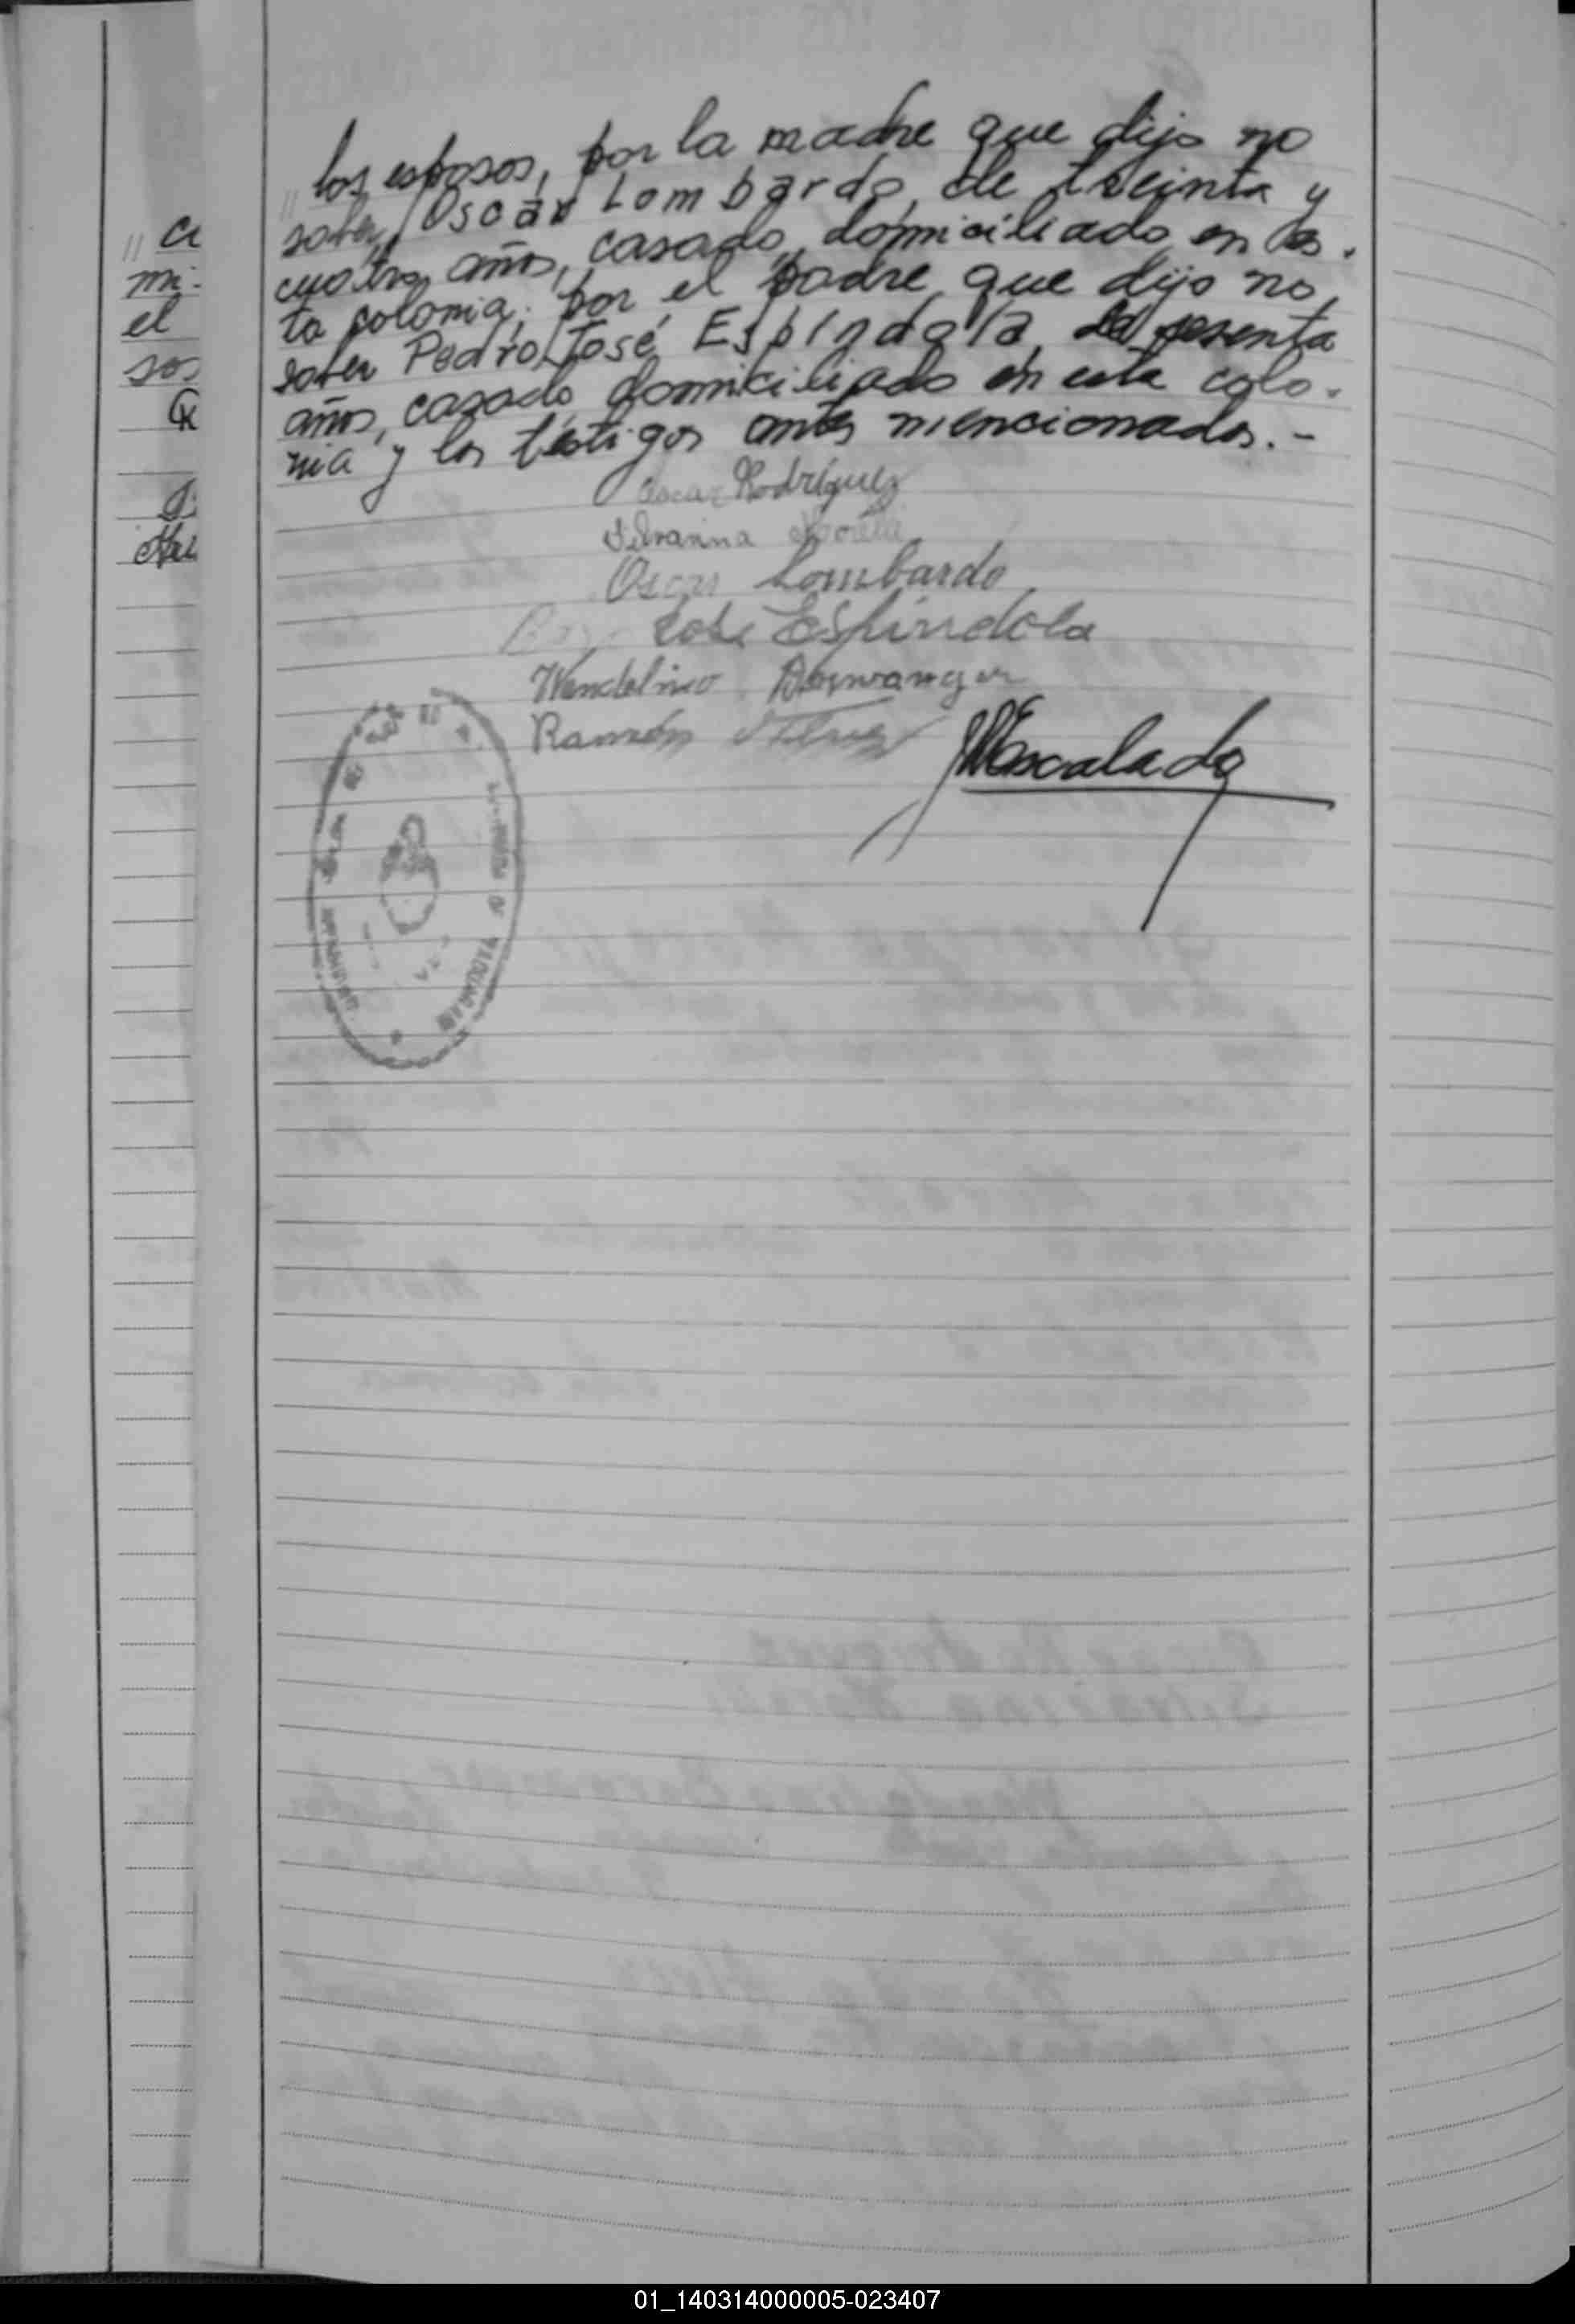 // los esposos, por la madre que dijo no
saber, Oscar Lombardo, de treinta y
cuatro años, casado, domiciliado en es-
ta colonia; por el padre que dijo no
saber Pedro José Espíndola, de sesenta
años, casado domiciliado en esta colo-
nia y los testigos antes mencionados.-
Oscar Rodríguez
Silvanna
Oscar Lombardo
José Espíndola
Wendelino
Ramón
Escalada
// a
mi-
el
sos
01_140314000005-023407